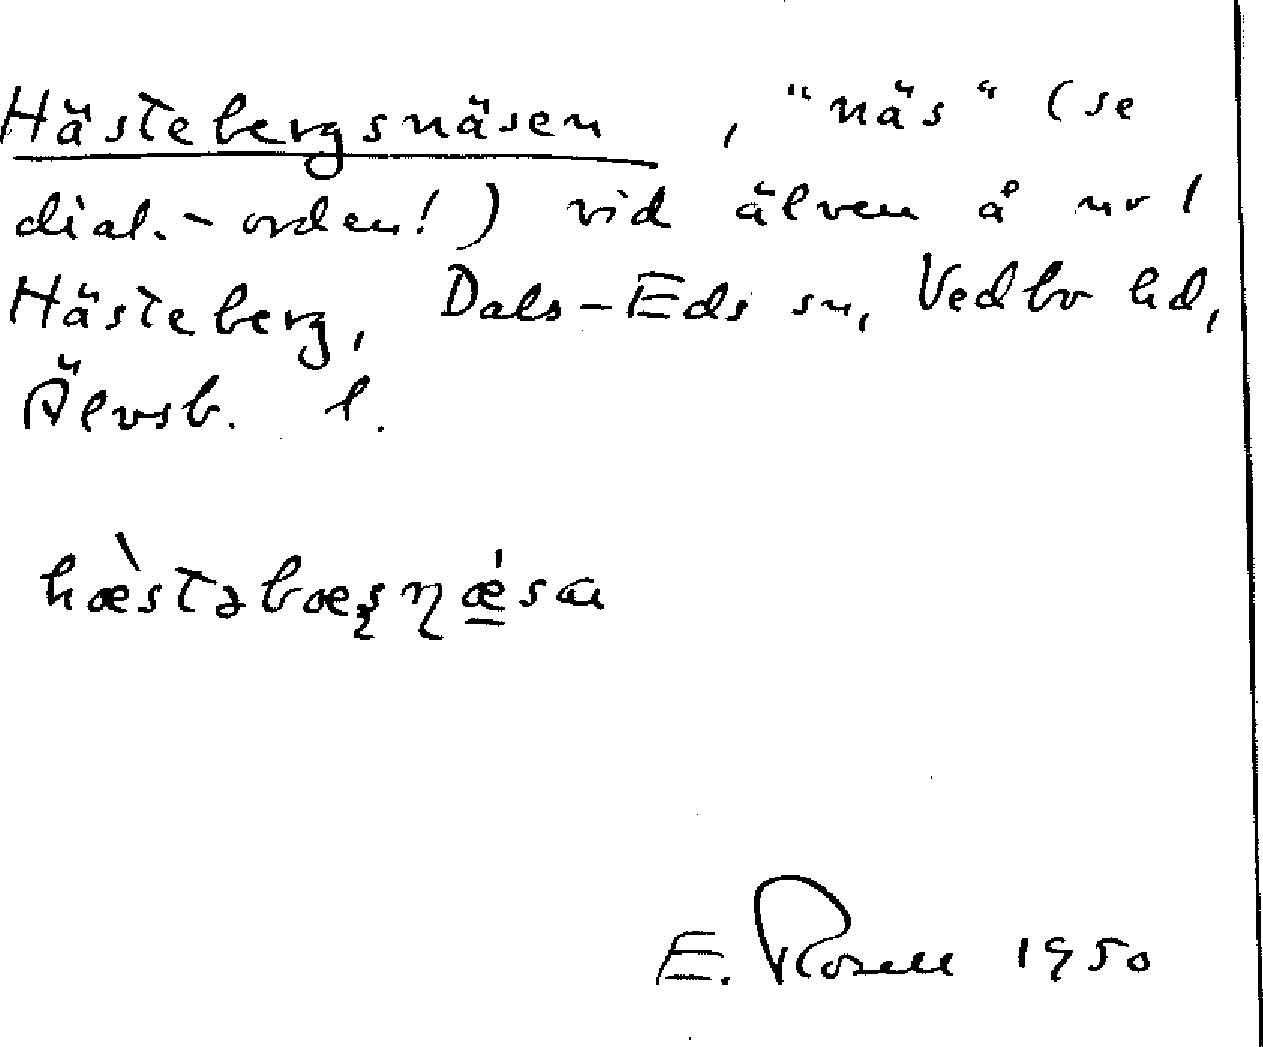 Hästebergsnäsen, "näs" (se
dial.-orden!) vid älven å nr 1
Hästeberg, Dals-Eds sn, Vedbo hd,
Älvsb. l.
hæ̀stəbæʂɳǽsa
E. Rosell 1950